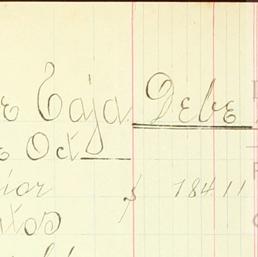 e Caja Debe
e Oct
rior $ 184.11
tos